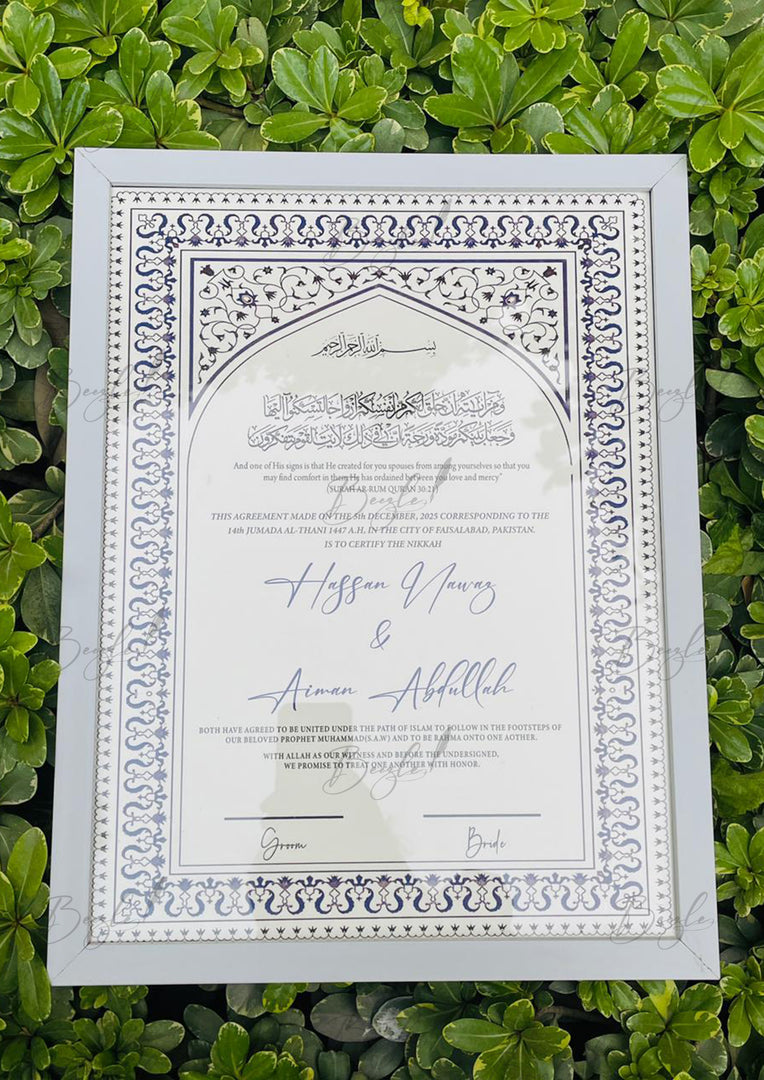 بسم الله الرحمن الرحيم
ومن آيته أن خلق لكم من أنفسكم أزواجا لتسكنوا إليها
وجعل بينكم مودة ورحمة إن في ذلك لآيت لقوم يتفكرون
And one of His signs is that He created for you spouses from among yourselves so that you
may find comfort in them He has ordained between you love and mercy"
(SURAH AR-RUM QUR'AN 30:21)
THIS AGREEMENT MADE ON THE 5th DECEMBER, 2025 CORRESPONDING TO THE
14th JUMADA AL-THANI 1447 A.H. IN THE CITY OF FAISALABAD, PAKISTAN.
IS TO CERTIFY THE NIKKAH
Hassan Nawaz
&
Aiman Abdullah
BOTH HAVE AGREED TO BE UNITED UNDER THE PATH OF ISLAM TO FOLLOW IN THE FOOTSTEPS OF
OUR BELOVED PROPHET MUHAMMAD(S.A.W) AND TO BE RAHMA ONTO ONE AOTHER.
WITH ALLAH AS OUR WITNESS AND BEFORE THE UNDERSIGNED,
WE PROMISE TO TREAT ONE ANOTHER WITH HONOR.
Groom Bride
Beezle